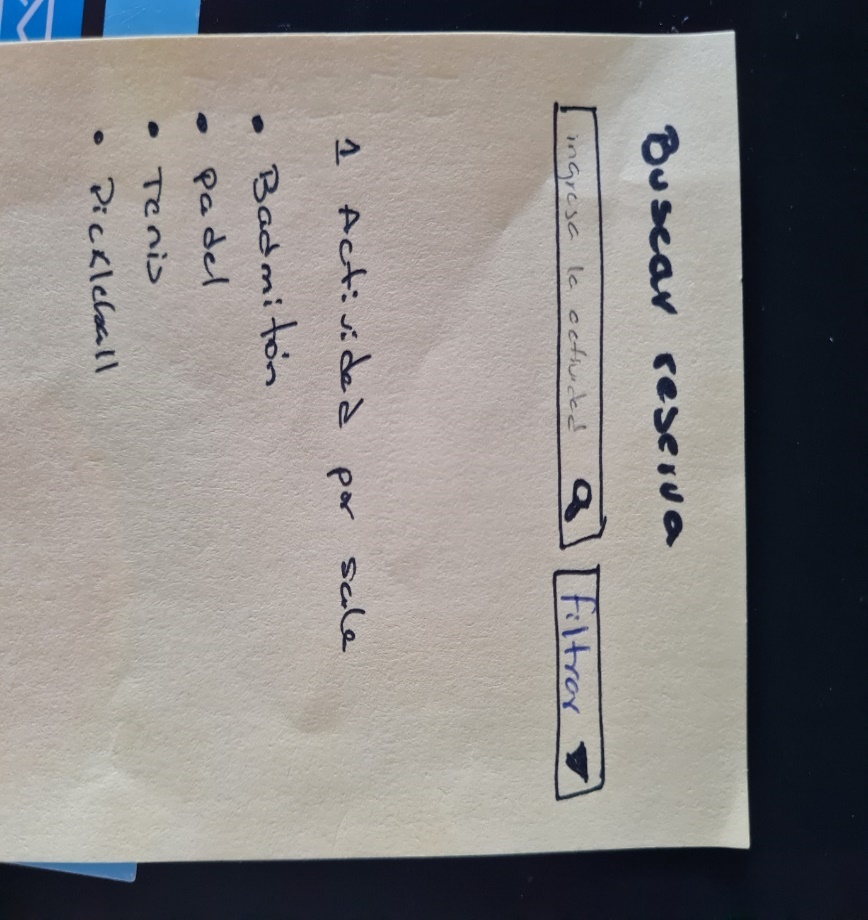 Buscar reserva
ingresa la actividad
Filtrar
1 Actividad por sala
• Badmitón
• Padel
• Tenis
• Pickleball